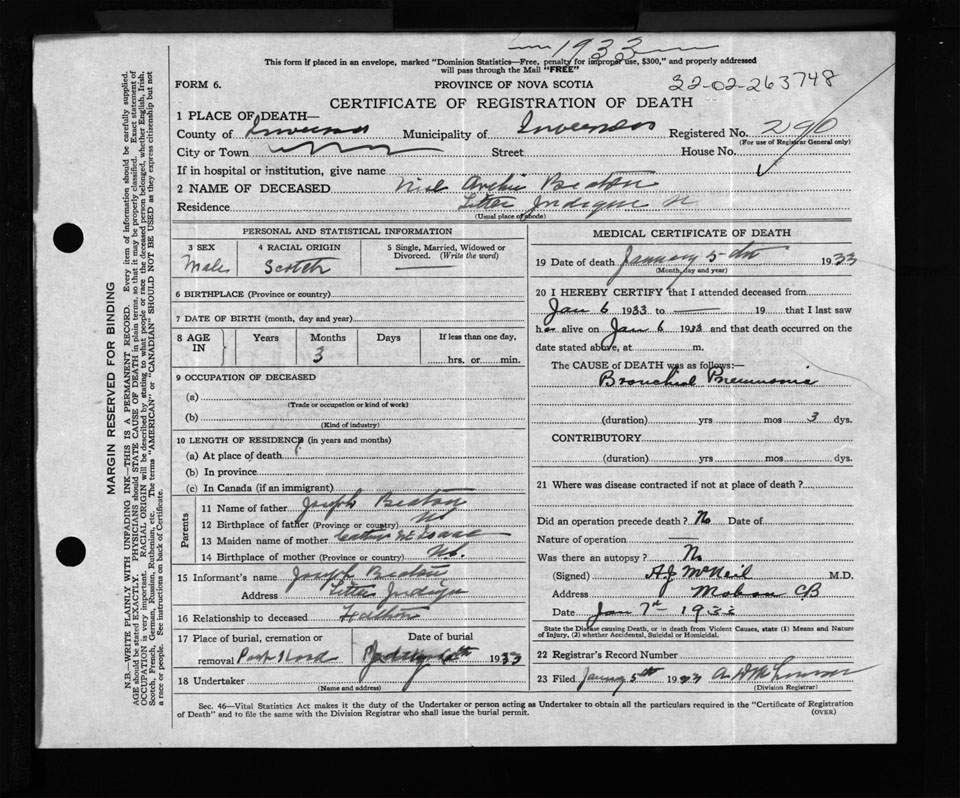 1933
This form if placed in an envelope, marked "Dominion Statistics—Free, penalty for improper use, $300," and properly addressed
will pass through the Mail "FREE"
FORM 6.
PROVINCE OF NOVA SCOTIA
32-02-263748
CERTIFICATE OF REGISTRATION OF DEATH
1 PLACE OF DEATH—
County of Inverness Municipality of Inverness Registered No. 290
(For use of Registrar General only)
City or Town Street House No.
If in hospital or institution, give name
2 NAME OF DECEASED Archie Beaton
Residence Little Judique
(Usual place of abode)
PERSONAL AND STATISTICAL INFORMATION
3 SEX 4 RACIAL ORIGIN 5 Single, Married, Widowed or
Divorced. (Write the word)
Male Scotch
6 BIRTHPLACE (Province or country)
7 DATE OF BIRTH (month, day and year)
8 AGE IN Years Months Days If less than one day,
3 hrs. or min.
9 OCCUPATION OF DECEASED
(a)
(Trade or occupation or kind of work)
(b)
(Kind of industry)
10 LENGTH OF RESIDENCE (in years and months)
(a) At place of death
(b) In province
(c) In Canada (if an immigrant)
Parents
11 Name of father Joseph Beaton
12 Birthplace of father (Province or country) NS
13 Maiden name of mother
14 Birthplace of mother (Province or country) NS.
15 Informant's name Joseph Beaton
Address Little Judique
16 Relationship to deceased Father
17 Place of burial, cremation or Date of burial
removal Port Hood 1933
18 Undertaker
(Name and address)
MEDICAL CERTIFICATE OF DEATH
19 Date of death January 5 1933
(Month, day and year)
20 I HEREBY CERTIFY that I attended deceased from
Jan 6 1933 to 19 that I last saw
h alive on Jan 6 1933 and that death occurred on
date stated above, at m.
The CAUSE of DEATH was as follows:—
Bronchial Pneumonia
(duration) yrs mos 3 dys.
CONTRIBUTORY
(duration) yrs mos dys.
21 Where was disease contracted if not at place of death?
Did an operation precede death? No Date of
Nature of operation
Was there an autopsy? No
(Signed) AJ McNeil M.D.
Address Mabou CB
Date Jan 7th 1933
State the Disease causing Death, or in death from Violent Causes, state (1) Means and Nature
of Injury, (2) whether Accidental, Suicidal or Homicidal.
22 Registrar's Record Number
23 Filed January 5th 1933
(Division Registrar)
Sec. 46—Vital Statistics Act makes it the duty of the Undertaker or person acting as Undertaker to obtain all the particulars required in the "Certificate of Registration
of Death" and to file the same with the Division Registrar who shall issue the burial permit. (OVER)
MARGIN RESERVED FOR BINDING
N.B.—WRITE PLAINLY WITH UNFADING INK—THIS IS A PERMANENT RECORD. Every item of information should be carefully supplied.
AGE should be stated EXACTLY. PHYSICIANS should STATE CAUSE OF DEATH in plain terms, so that it may be properly classified. Exact statement of
OCCUPATION is very important. RACIAL ORIGIN will be described by stating to what people or race the deceased person belonged, whether English, Irish,
Scotch, French, German, Russian, Ruthenian, etc. The terms "AMERICAN" or "CANADIAN" SHOULD NOT BE USED as they express citizenship but not
a race or people. See instructions on back of Certificate.